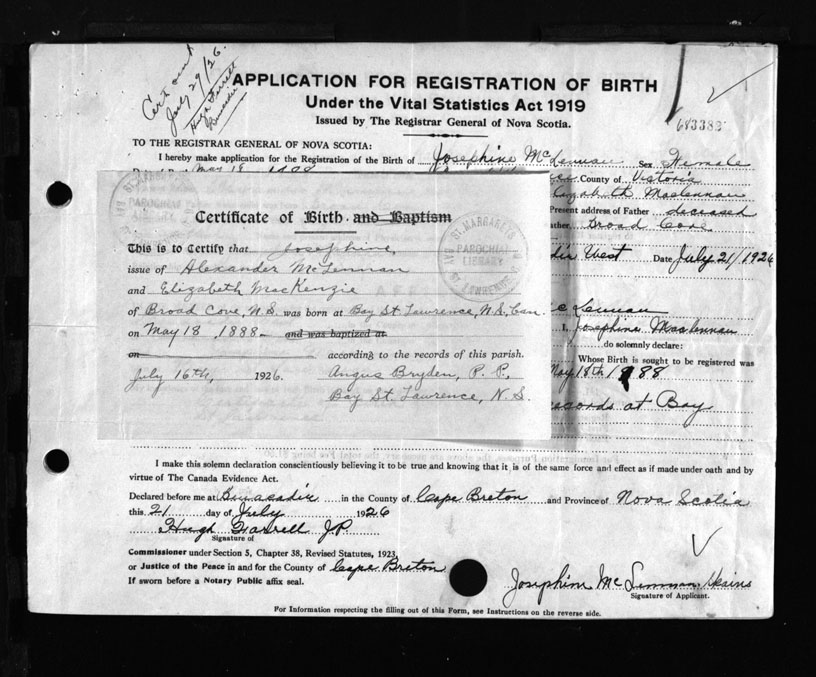 Cert sent
July 29/26.
Hugh Farrell
APPLICATION FOR REGISTRATION OF BIRTH
Under the Vital Statistics Act 1919
Issued by The Registrar General of Nova Scotia.
683383
TO THE REGISTRAR GENERAL OF NOVA SCOTIA:
I hereby make application for the Registration of the Birth of Josephine McLennan Sex Female
May 18
County of Victoria
Elizabeth Maclennan
Present address of Father deceased
Broad Cove
West Date July 21/1926
Certificate of Birth and Baptism
This is to Certify that Josephine,
issue of Alexander McLennan
and Elizabeth MacKenzie
of Broad Cove, N.S. was born at Bay St Lawrence, N.S. Can.
on May 18, 1888 and was baptized at
on according to the records of this parish.
July 16th, 1926. Angus Bryden, P. P.,
Bay St. Lawrence, N. S.
ST. MARGARET'S
PAROCHIAL
LIBRARY
BAY ST. LAWRENCE
Lennan
I, Josephine Maclennan
do solemnly declare:
Whose Birth is sought to be registered was
May 18th 1888
records at Bay
I make this solemn declaration conscientiously believing it to be true and knowing that it is of the same force and effect as if made under oath and by
virtue of The Canada Evidence Act.
Declared before me at in the County of Cape Breton and Province of Nova Scotia
this 21 day of July 1926
Hugh Farrell J.P.
Signature of
Commissioner under Section 5, Chapter 38, Revised Statutes, 1923,
or Justice of the Peace in and for the County of Cape Breton
If sworn before a Notary Public affix seal.
Josephine McLennan
Signature of Applicant.
For Information respecting the filling out of this Form, see Instructions on the reverse side.